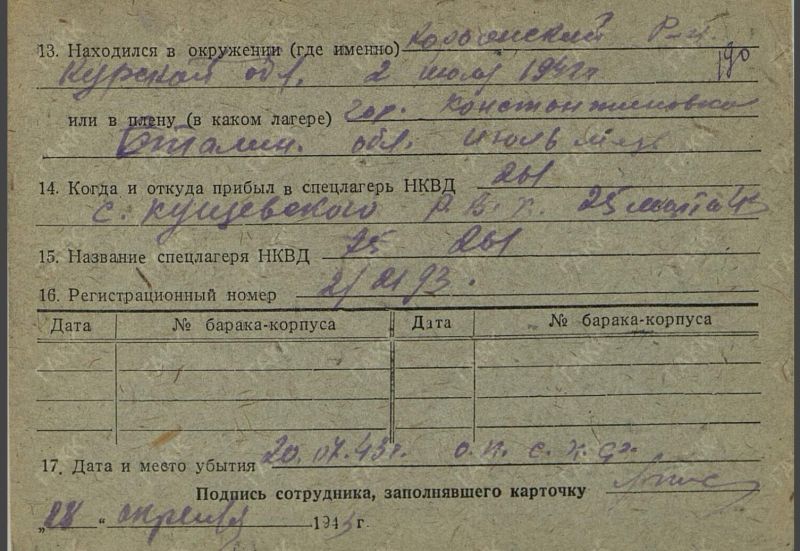 13. Находился в окружении (где именно) Р-н.
Курской обл. 2 июля 1942г
или в плену (в каком лагере) гор. Константиновка
Сталин. обл. июль м-ц
14. Когда и откуда прибыл в спецлагерь НКВД 261
с. Кущевского Р.В.К. 25 марта
15. Название спецлагеря НКВД 261
16. Регистрационный номер
Дата № барака-корпуса Дата № барака-корпуса
17. Дата и место убытия 20.04.43г.
Подпись сотрудника, заполнявшего карточку
„28“ апреля 1943 г.